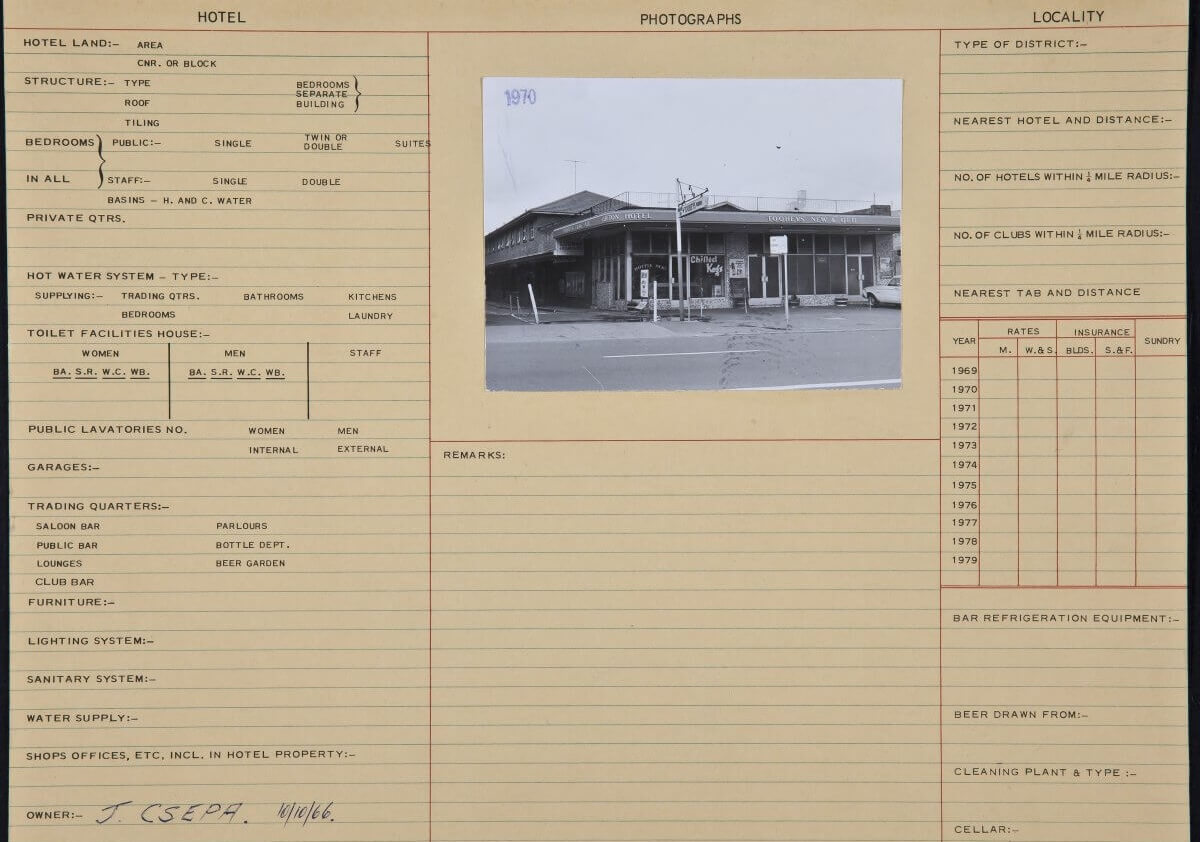 HOTEL
HOTEL LAND:– AREA
CNR. OR BLOCK
STRUCTURE:– TYPE
BEDROOMS
SEPARATE
BUILDING
ROOF
TILING
BEDROOMS PUBLIC:– SINGLE TWIN OR DOUBLE SUITES
IN ALL STAFF:– SINGLE DOUBLE
BASINS – H. AND C. WATER
PRIVATE QTRS.
HOT WATER SYSTEM – TYPE:–
SUPPLYING:– TRADING QTRS. BATHROOMS KITCHENS
BEDROOMS LAUNDRY
TOILET FACILITIES HOUSE:–
WOMEN MEN STAFF
BA. S.R. W.C. WB. BA. S.R. W.C. WB.
PUBLIC LAVATORIES NO. WOMEN MEN
INTERNAL EXTERNAL
GARAGES:–
TRADING QUARTERS:–
SALOON BAR PARLOURS
PUBLIC BAR BOTTLE DEPT.
LOUNGES BEER GARDEN
CLUB BAR
FURNITURE:–
LIGHTING SYSTEM:–
SANITARY SYSTEM:–
WATER SUPPLY:–
SHOPS OFFICES, ETC, INCL. IN HOTEL PROPERTY:–
OWNER:– J. CSEPA. 10/10/66.
PHOTOGRAPHS
1970
HOTEL
TOOHEYS NEW & OLD
Chilled
Kegs
REMARKS:
LOCALITY
TYPE OF DISTRICT:–
NEAREST HOTEL AND DISTANCE:–
NO. OF HOTELS WITHIN ¼ MILE RADIUS:–
NO. OF CLUBS WITHIN ¼ MILE RADIUS:–
NEAREST TAB AND DISTANCE
YEAR RATES INSURANCE SUNDRY
M. W.& S. BLDS. S.& F.
1969
1970
1971
1972
1973
1974
1975
1976
1977
1978
1979
BAR REFRIGERATION EQUIPMENT:–
BEER DRAWN FROM:–
CLEANING PLANT & TYPE :–
CELLAR:–